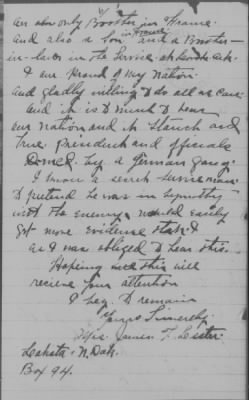 an only Brother in France.
and also a son in France and a Brother
in-law in the Service at
I am proud of my Nation.
and gladly willing to do all we can.
and it is to much to hear
our nation and it Staunch and
true President and officials
by a german gang.
I know a secret service man
to pretend he was in sympathy
with the enemy would easily
get more evidence that
as I was obliged to hear this.
Hoping this will
receive your attention
I beg to remain
Yours Sincerely
Mrs. James T. Lester
Lakota - N. Dak.
Box 94.